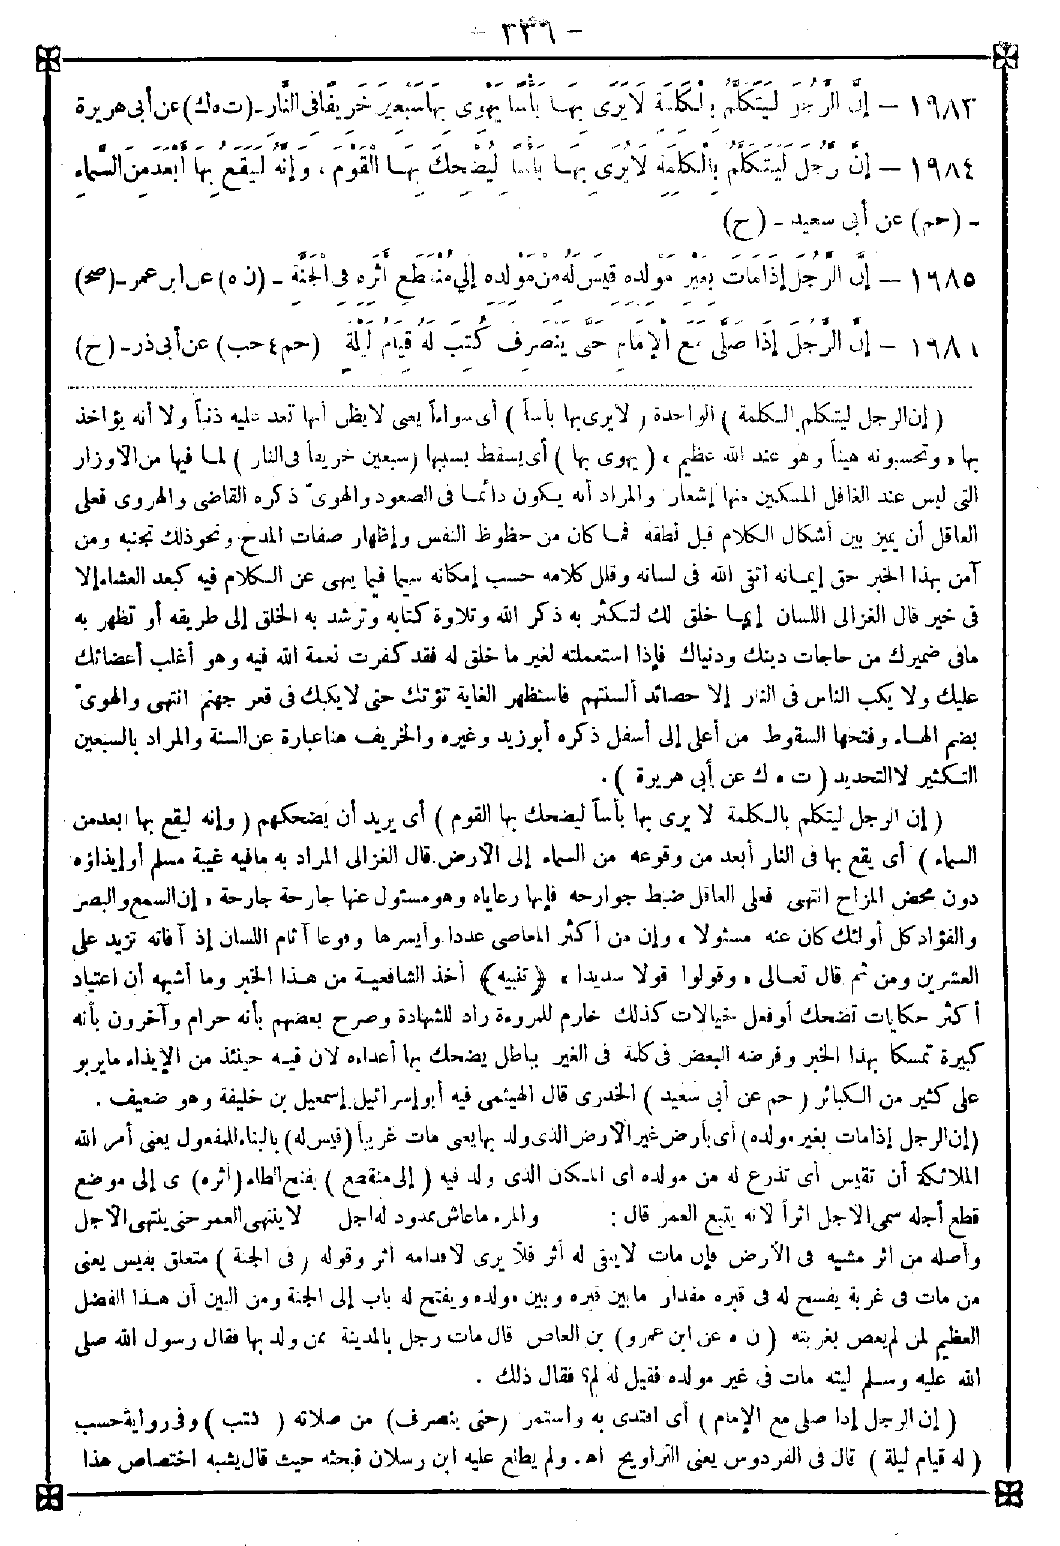 - ٣٣٦ -
١٩٨٣ - إِنَّ الرَّجُلَ لَيَتَكَلَّمُ بِالْكَلِمَةِ لَا يَرَى بِهَا بَأْسًا يَهْوِى بِهَا سَبْعِينَ خَرِيفًا فِى النَّارِ - (ت ه ك) عن أبى هريرة
١٩٨٤ - إِنَّ الرَّجُلَ لَيَتَكَلَّمُ بِالْكَلِمَةِ لَا يَرَى بِهَا بَأْسًا لِيُضْحِكَ بِهَا الْقَوْمَ ، وَإِنَّهُ لَيَقَعُ بِهَا أَبْعَدَ مِنَ السَّمَاءِ
- (حم) عن أبى سعيد - (ح)
١٩٨٥ - إِنَّ الرَّجُلَ إِذَا مَاتَ بِغَيْرِ مَوْلِدِهِ قِيسَ لَهُ مِنْ مَوْلِدِهِ إِلَى مُنْقَطَعِ أَثَرِهِ فِى الْجَنَّةِ - (ن ه) عن ابن عمر - (صح)
١٩٨٦ - إِنَّ الرَّجُلَ إِذَا صَلَّى مَعَ الْإِمَامِ حَتَّى يَنْصَرِفَ كُتِبَ لَهُ قِيَامُ لَيْلَةٍ (حم ٤ حب) عن أبى ذر - (ح)
( إن الرجل ليتكلم بالكلمة ) الواحدة ( لا يرى بها بأساً ) أى سواءاً يعنى لا يظن أنها تعد عليه ذنباً ولا أنه يؤاخذ
بها « وتحسبونه هيناً وهو عند الله عظيم » ( يهوى بها ) أى يسقط بسببها ( سبعين خريفاً فى النار ) لما فيها من الأوزار
التى ليس عند الغافل المسكين منها إشعار والمراد أنه يكون دائما فى الصعود والهوىّ ذكره القاضى والهروى فعلى
العاقل أن يميز بين أشكال الكلام قبل نطقه فما كان من حظوظ النفس وإظهار صفات المدح ونحو ذلك تجنبه ومن
آمن بهذا الخبر حق إيمانه اتقى الله فى لسانه وقلل كلامه حسب إمكانه سيما فيما ينهى عن الكلام فيه كبعد العشاء إلا
فى خير قال الغزالى اللسان إنما خلق لك لتكثر به ذكر الله وتلاوة كتابه وترشد به الخلق إلى طريقه أو تظهر به
مافى ضميرك من حاجات دينك ودنياك فإذا استعملته لغير ما خلق له فقد كفرت نعمة الله فيه وهو أغلب أعضائك
عليك ولا يكب الناس فى النار إلا حصائد ألسنتهم فاستظهر الغاية قوّتك حتى لا يكبك فى قعر جهنم انتهى والهوىّ
بضم الهاء وفتحها السقوط من أعلى إلى أسفل ذكره أبو زيد وغيره والخريف هنا عبارة عن السنة والمراد بالسبعين
التكثير لا التحديد ( ت ه ك عن أبى هريرة ) .
( إن الرجل ليتكلم بالكلمة لا يرى بها بأساً ليضحك بها القوم ) أى يريد أن يضحكهم ( وإنه ليقع بها ابعد من
السماء ) أى يقع بها فى النار أبعد من وقوعه من السماء إلى الأرض قال الغزالى المراد به مافيه غيبة مسلم أو إيذاؤه
دون محض المزاح انتهى فعلى العاقل ضبط جوارحه فإنها رعاياه وهو مسئول عنها جارحة جارحة « إن السمع والبصر
والفؤاد كل أولئك كان عنه مسئولا » وإن من أكثر المعاصى عددا وأيسرها وقوعا آثام اللسان إذ آفاته تزيد على
العشرين ومن ثم قال تعالى « وقولوا قولا سديدا » ﴿تنبيه﴾ أخذ الشافعية من هذا الخبر وما أشبهه أن اعتياد
أكثر حكايات تضحك أو فعل خيالات كذلك خارم للمروءة راد للشهادة وصرح بعضهم بأنه حرام وآخرون بأنه
كبيرة تمسكا بهذا الخبر وفرضه البعض فى كلمة فى الغير بباطل يضحك بها أعداءه لان فيه حينئذ من الإيذاء مايربو
على كثير من الكبائر ( حم عن أبى سعيد ) الخدرى قال الهيثمى فيه أبو إسرائيل إسمعيل بن خليفة وهو ضعيف .
(إن الرجل إذا مات بغير مولده) أى بأرض غير الأرض الذى ولد بها يعنى مات غريباً (قيس له) بالبناء للمفعول يعنى أمر الله
الملائكة أن تقيس أى تذرع له من مولده اى المكان الذى ولد فيه ( إلى منقطع ) بفتح الطاء (أثره) ى إلى موضع
قطع أجله سمى الاجل اثراً لانه يتبع العمر قال : والمرء ماعاش ممدود له اجل لا ينتهى العمر حتى ينتهى الاجل
وأصله من أثر مشيه فى الأرض فإن مات لا يبقى له أثر فلا يرى لاقدامه اثر وقوله ( فى الجنة ) متعلق بقيس يعنى
من مات فى غربة يفسح له فى قبره مقدار مابين قبره وبين مولده ويفتح له باب إلى الجنة ومن البين أن هذا الفضل
العظيم لمن لم يعص بغربته ( ن ه عن ابن عمرو) بن العاص قال مات رجل بالمدينة ممن ولد بها فقال رسول الله صلى
الله عليه وسلم ليته مات فى غير مولده فقيل له لم؟ فقال ذلك .
( إن الرجل إذا صلى مع الإمام ) أى اقتدى به واستمر (حتى ينصرف) من صلاته ( كتب ) وفى رواية حسب
( له قيام ليلة ) قال فى الفردوس يعنى التراويح اه . ولم يطلع عليه ابن رسلان فبحثه حيث قال يشبه اختصاص هذا